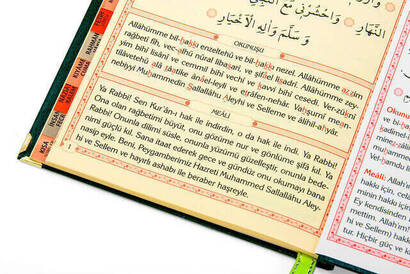 النَّهَارِ وَاحْشُرْنِي مَعَ النَّبِيِّ
وَسَلَّمَ وَآلِهِ الْأَخْيَارِ
OKUNUŞU
Allâhümme bil-hakkı enzeltehü ve bil-hakkı nezel. Allâhümme azzim
rağbetî fîh, vec-alhü nûral libasarî, ve şifâel lisadrî. Allâhümme zey-
yin bihî lisânî ve cemmil bihî vechî ve kavvi bihî cesedî. Ver-züknî
tilâvetehû alâ tâatike ânâel-leyli ve etrâfen-nehâr. Vahşurnî mean-
nebiyyi Muhammedin Sallallâhü Aleyhi ve Selleme ve âlihil-ahyâr.
MEÂLİ
Ya Rabbi! Sen Kur'ân-ı hak ile indirdin, o da hak ile indi. Ya Rabbi!
Ona olan rağbetimi büyüt, onu gözüme nur ve gönlüme şifâ kıl. Ya
Rabbi! Onunla dilimi süsle, onunla yüzümü güzelleştir, onunla bede-
nimi güçlü kıl. Sana itaat ederek gece ve gündüz onu okumayı bana
nasip eyle. Beni, Peygamberimiz Hazreti Muhammed Sallallâhu Aley-
hi ve Sellem ve hayırlı ashabı ile beraber haşreyle.
RAHMAN
KIYAME
CUMA
YASİN
FECR
NASR
Okunu
Meâli:
hakkı için, cele
hakkı için, min
Ey kendisinden
mettim. Allah'ım!
hi ve Sellem) ha
tur. Hiçbir güç ve k